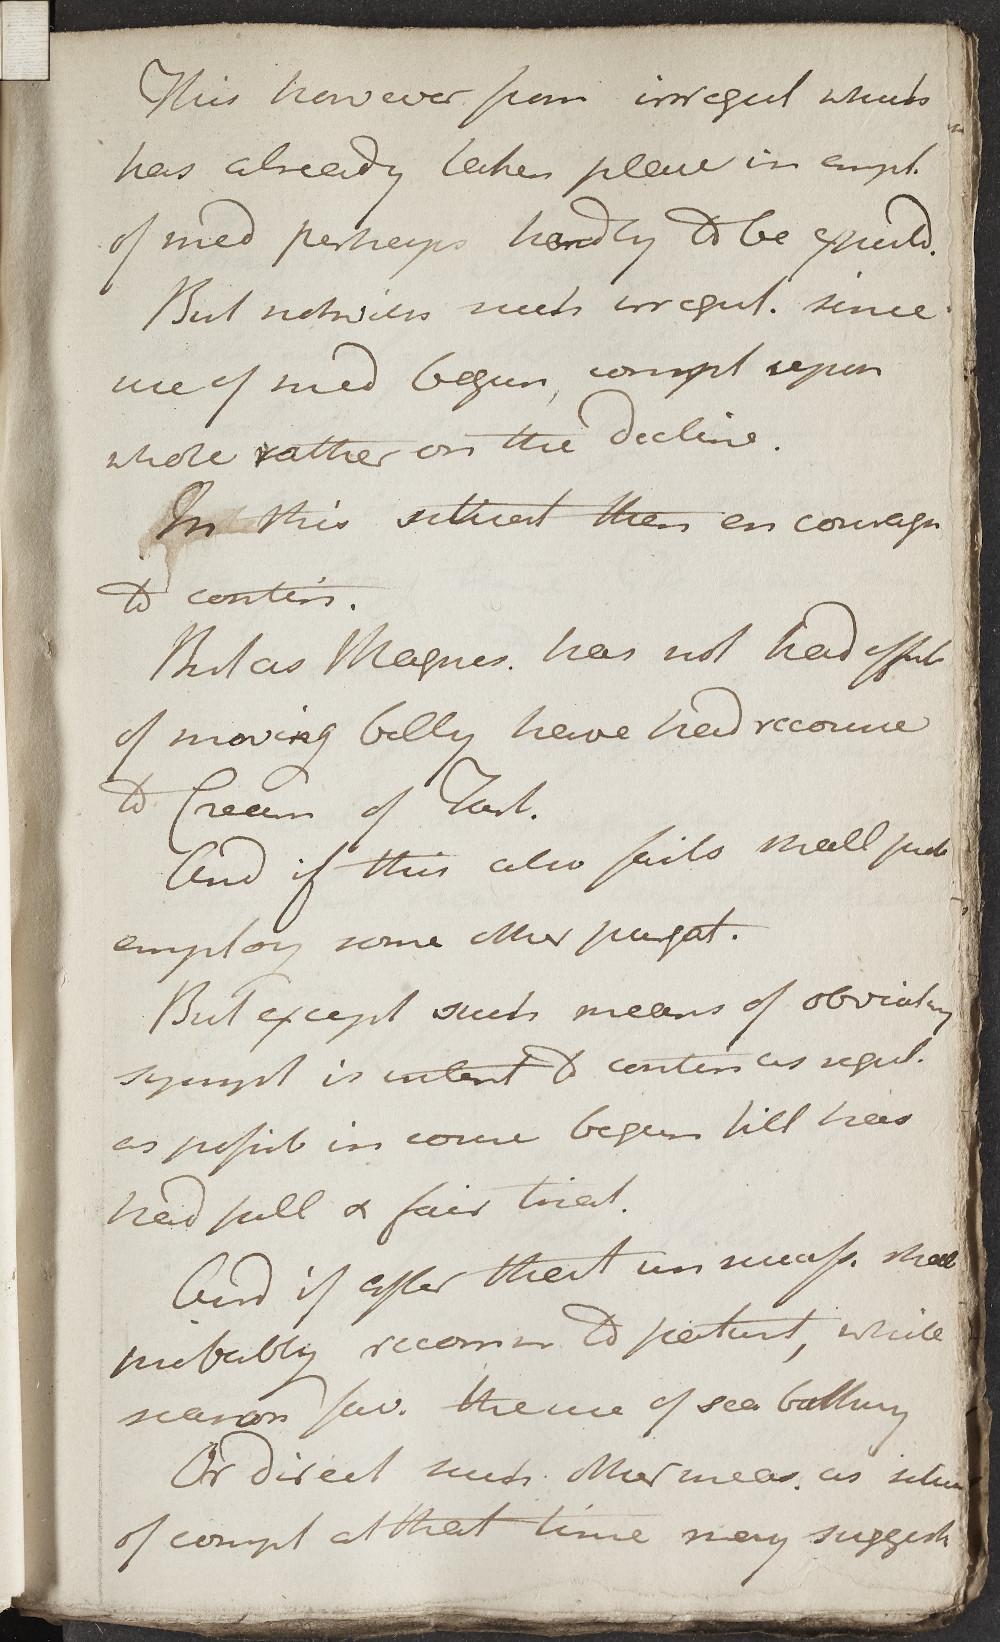 This however from irregul which
has already taken place in empl.
of med perhaps hardly to be expectd.
But notwiths such irregul. since
use of med begun, compt upon
whole rather on the decline.
In this situat then encourage
to contin.
But as Magnes. has not had effect
of moving belly have had recourse
to Cream of Tart.
And if this also fails shall
employ some other purgat.
But except such means of obviating
sympt is intent to contin as regul.
as possib in course begun till has
had full & fair trial.
And if after that unsuccessf. shall
probably recomm to patient, while
season fav. the use of sea bathing
Or direct such other meas. as
of compt at that time may suggest